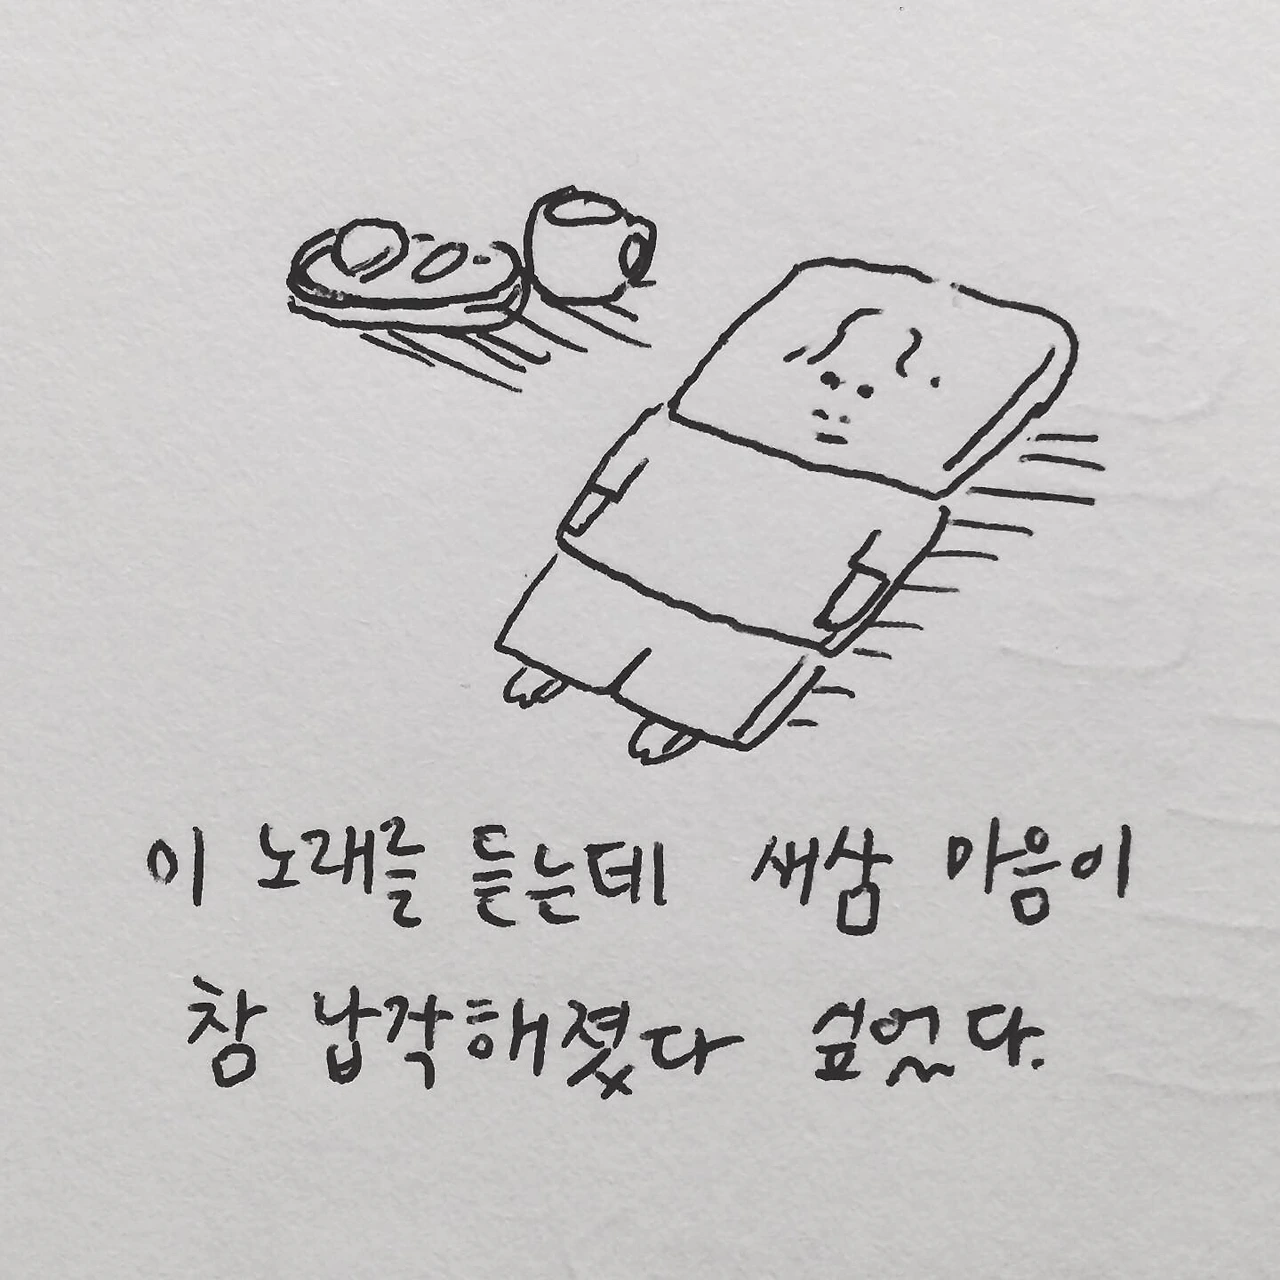 이 노래를 듣는데 새삼 마음이
참 납작해졌다 싶었다.